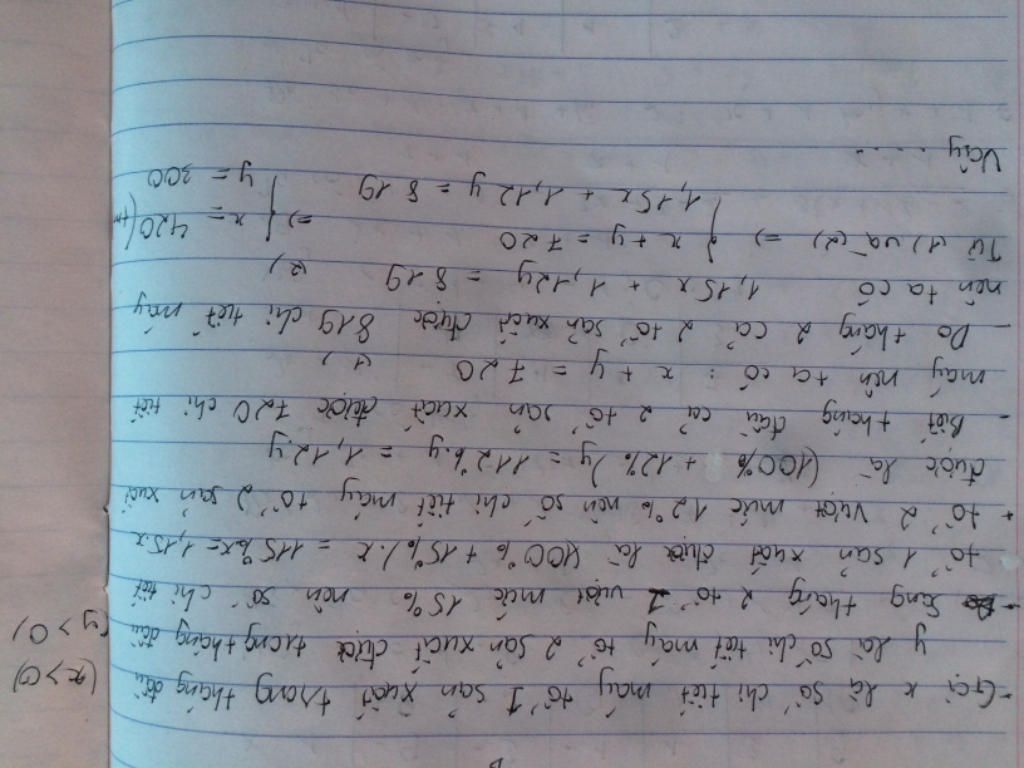 - Gọi x là số chi tiết máy tổ 1 sản xuất trong tháng đầu (x > 0)
y là số chi tiết máy tổ 2 sản xuất được trong tháng đầu (y > 0)
- Sang tháng 2 tổ 1 vượt mức 15% nên số chi tiết
tổ 1 sản xuất được là (100% + 15%).x = 115%x = 1,15x
+ tổ 2 vượt mức 12% nên số chi tiết máy tổ 2 sản xuất
được là (100% + 12%)y = 112%.y = 1,12y
- Biết tháng đầu cả 2 tổ sản xuất được 720 chi tiết
máy nên ta có : x + y = 720 (1)
- Do tháng 2 cả 2 tổ sản xuất được 819 chi tiết máy
nên ta có 1,15x + 1,12y = 819 (2)
Từ (1) và (2) => { x + y = 720 => { x = 420 (tm
1,15x + 1,12y = 819 y = 300
Vậy .....